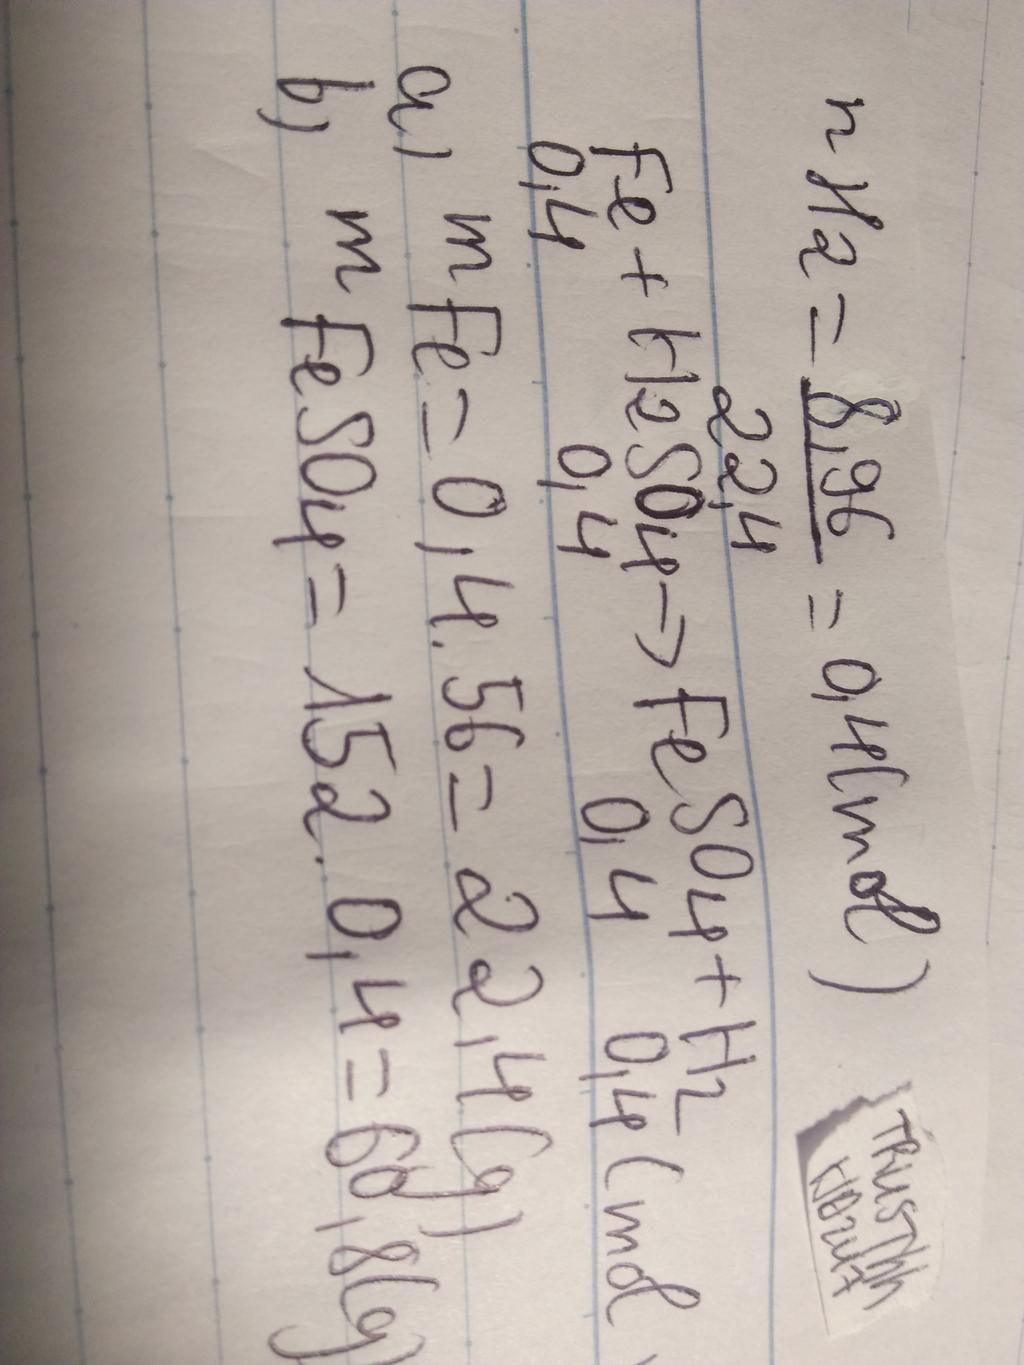 n H2 = 8,96 = 0,4(mol)
22,4
Fe + H2SO4 -> FeSO4 + H2
0,4 0,4 0,4 0,4(mol)
a, m Fe = 0,4.56 = 22,4(g)
b, m FeSO4 = 152.0,4 = 60,8(g)